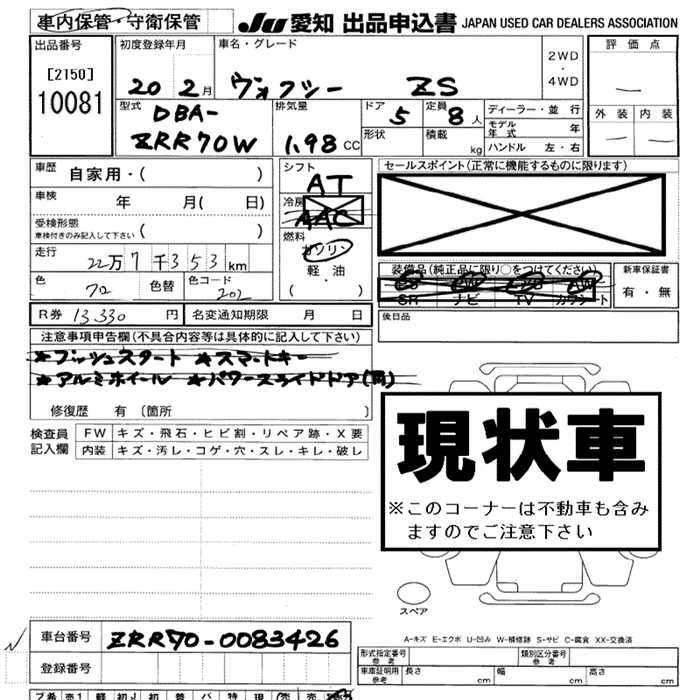 車内保管・守衛保管
JU 愛知 出品申込書 JAPAN USED CAR DEALERS ASSOCIATION
出品番号 初度登録年月 車名・グレード 評価点
[2150]
10081
20 2月 ヴォクシー ZS
2WD
・
4WD
外装 内装
型式 排気量 ドア 定員 ディーラー・並行
DBA-
ZRR70W
1.98 CC
5 8人
形状 積載 kg
モデル年式 年
ハンドル 左・右
車歴 自家用・( )
車検 年 月( 日)
受検形態
車検付きのみ記入して下さい ( )
走行 22万7千353km
色 70 色替 色コード 202
シフト
AT
冷房
AAC
燃料
ガソリン
軽・油
( ・ )
セールスポイント(正常に機能するものに限ります)
装備品(純正品に限り○をつけてください)
SR ナビ TV カワシート
新車保証書
有・無
R券 13330 円 名変通知期限 月 日
後日品
注意事項申告欄(不具合内容等は具体的に記入して下さい)
★プッシュスタート ★スマートキー
★アルミホイール ★パワースライドドア(両)
修復歴 有 〔箇所 〕
検査員記入欄
FW キズ・飛石・ヒビ割・リペア跡・X要
内装 キズ・汚レ・コゲ・穴・スレ・キレ・破レ
現状車
※このコーナーは不動車も含み
ますのでご注意下さい
スペア
A-キズ E-エクボ U-凹み W-補修跡 S-サビ C-腐食 XX-交換済
車台番号 ZRR70-0083426
登録番号
形式指定番号 参考 類別区分番号 参考
車庫証明用 参考 長さ cm 幅 cm 高さ cm